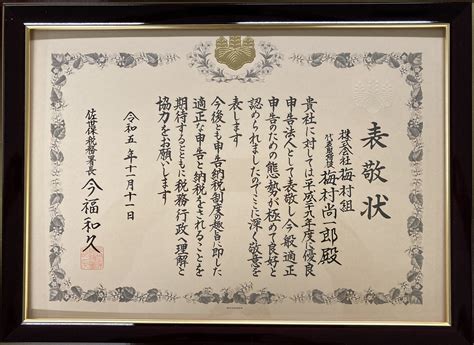 表敬状
株式会社梅村組
代表取締役 梅村尚一郎殿
貴社に対しては平成二十九年度に優良
申告法人として表敬し今般適正
申告のための態勢が極めて良好と
認められましたのでここに深く敬意を
表します
今後とも申告納税制度の趣旨に即した
適正な申告と納税をされることを
期待するとともに税務行政へ理解と
協力をお願いします
令和五年十一月十一日
佐世保税務署長 今福和久